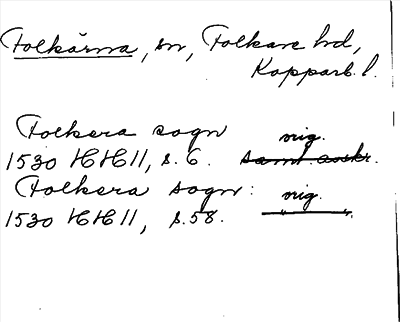 Folkärna, sn, Folkare hd,
Kopparb. l.
Folkera sogn orig.
1530 HH II, s. 6. samt. avskr.
Folkera sogn: orig.
1530 HH II, s. 58. — " —